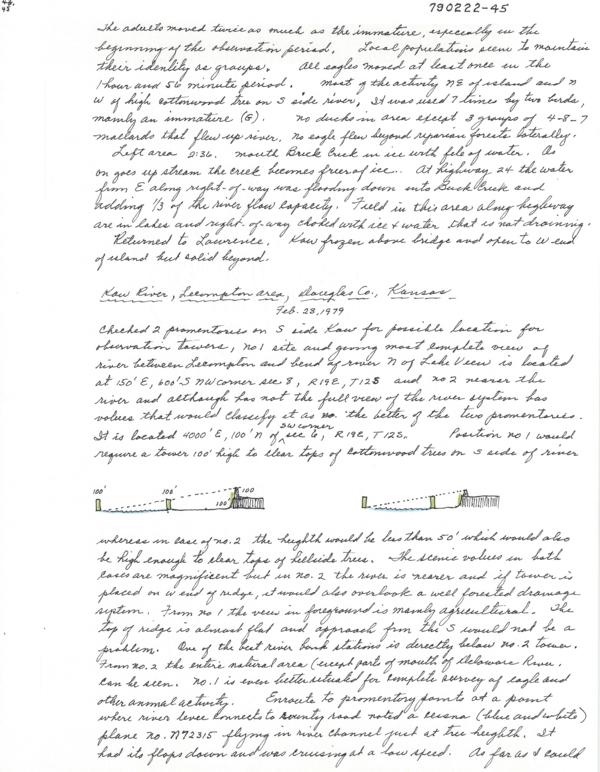 48.
45
790222-45
The adults moved twice as much as the immature, especially in the
beginning of the observation period. Local populations seem to maintain
their identity as groups. All eagles moved at least once in the
1 hour and 56 minute period. most of the activity NE of island and N
W of high cottonwood tree on S side river. It was used 7 times by two birds,
mainly an immature (G). no ducks in area except 3 groups of 4-8-7
mallards that flew up river. No eagle flew beyond reparian forests laterally.
Left area 2:36. mouth Buck Creek in ice with film of water. As
on goes up stream the creek becomes freer of ice. At highway 24 the water
from E along right-of-way was flooding down into Buck Creek and
adding 1/3 of the river flow capacity. Field in this area along highway
are in lakes and right-of-way choked with ice & water that is not draining.
Returned to Lawrence. Kaw frozen above bridge and open to W end
of island but solid beyond.
Kaw River, Lecompton area, Douglas Co., Kansas
Feb. 23, 1979
Checked 2 promentories on S side Kaw for possible location for
observation towers, no 1 site and giving most complete view of
river between Lecompton and bend of river N of Lake View is located
at 150' E, 600' S NW corner sec 8, R19E, T12S and no 2 nearer the
river and although has not the full view of the river system has
values that would classify it as the better of the two promentories.
SW corner
It is located 4000' E, 100' N of sec 6, R19E, T12S. Position no 1 would
require a tower 100' high to clear tops of cottonwood trees on S side of river
100' 100' 100' 100
whereas in case of no. 2 the heighth would be less than 50' which would also
be high enough to clear tops of hillside trees. The scenic values in both
cases are magnificent but in no. 2 the river is nearer and if tower is
placed on W end of ridge, it would also overlook a well forested drainage
system. From no 1 the view in foreground is mainly agricultural. The
top of ridge is almost flat and approach from the S would not be a
problem. One of the best river bank stations is directly below no. 2 tower.
From no. 2 the entire natural area (except part of mouth of Delaware River.
can be seen. No. 1 is even better situated for complete survey of eagle and
other animal activity. Enroute to promentory points at a point
where river levee connects to county road noted a cessna (blue and white)
plane no. N72315 flying in river channel just at tree heighth. It
had its flaps down and was cruising at a low speed. As far as I could